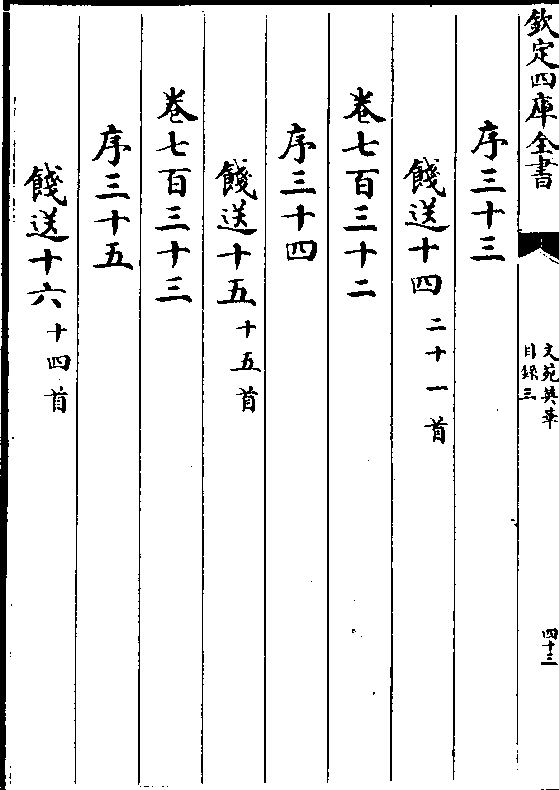 欽定四庫全書
文苑英華
目録三
四十三
序三十三
餞送十四 二十一首
卷七百三十二
序三十四
餞送十五 十五首
卷七百三十三
序三十五
餞送十六 十四首